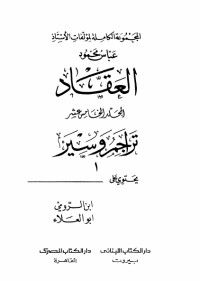 المجموعة الكاملة لمؤلفات الأستاذ
عباس محمود
العقاد
المجلد الخامس عشر
تراجم وسير
١
يحتوي على
ابن الرومي
أبو العلاء
دار الكتاب اللبناني
بيروت
دار الكتاب المصري
القاهرة